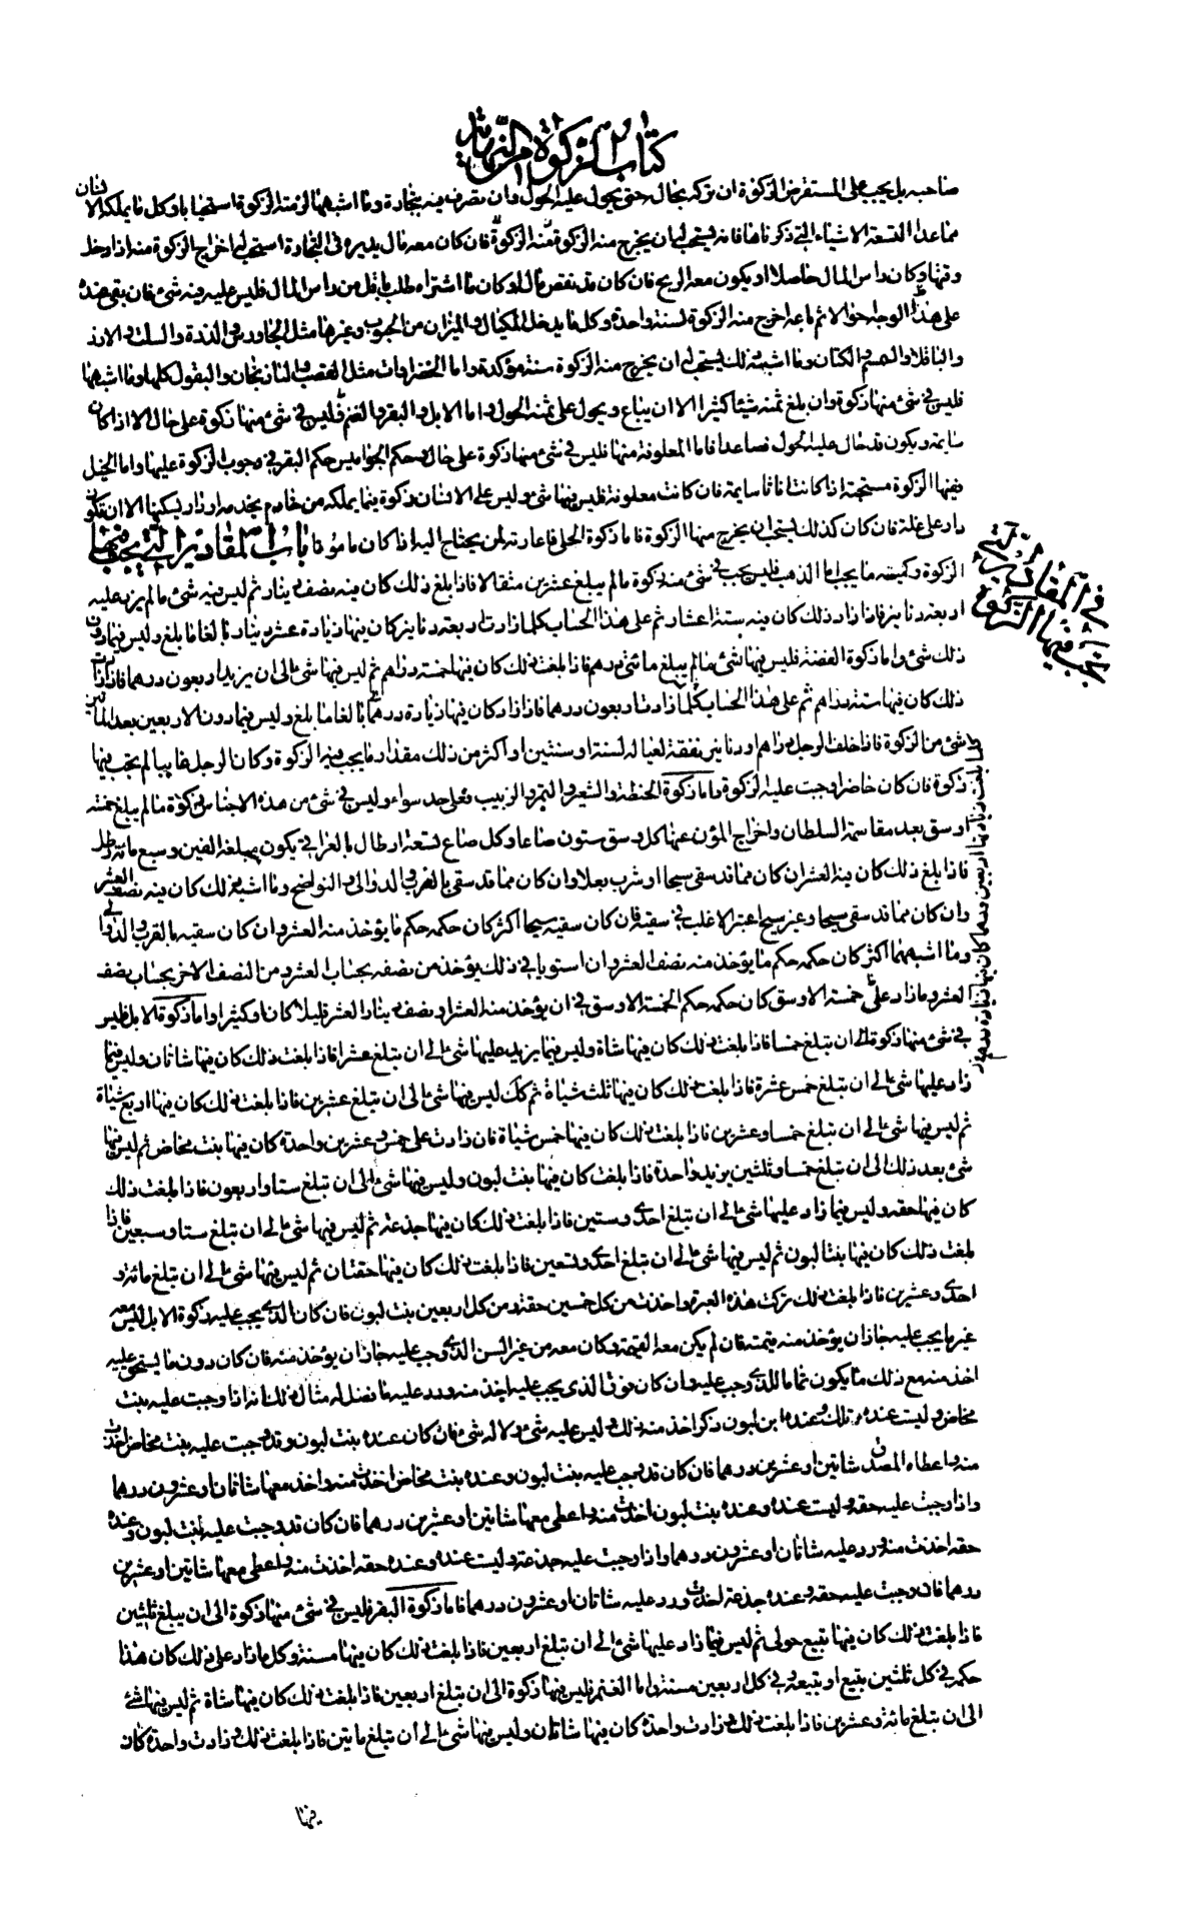 كتاب الزكوة من النهاية
صاحبه بل يجب على المستقرض الزكوة ان تركه بحاله حتى يحول عليه الحول وان تصرف فيه بتجارة وما اشبهها لزمته الزكوة استحبابا وكل ما يملكه الانسان
مما عدا التسعة الاشياء التي ذكرناها فانه يستحب له ان يخرج منه الزكوة فان كان معه مال يديره في التجارة استحب له اخراج الزكوة منه اذا دخل
وقتها وكان راس المال حاصلا او يكون معه الربح فان كان قد نقص ماله او كان ما اشتراه طلب باقل من راس المال فليس عليه فيه شئ فان بقي عنده
على هذا الوجه احوالا ثم باعه اخرج منه الزكوة لسنة واحدة وكل ما يدخل المكيال والميزان من الحبوب وغيرها مثل الجاورس والذرة والسلت والارز
والباقلا والسمسم والكتان وما اشبه ذلك يستحب له ان يخرج منه الزكوة سنة مؤكدة واما الخضراوات مثل القضب والباذنجان والبقول كلها وما اشبهها
فليس في شئ منها زكوة وان بلغ ثمنه شيئا كثيرا الا ان يباع ويحول على ثمنه الحول واما الابل والبقر والغنم فليس في شئ منها زكوة على حال الا اذا كان
سايمة ويكون قد حال عليه الحول فصاعدا فاما المعلوفة منها فليس في شئ منها زكوة على حال وحكم الجواميس حكم البقر في وجوب الزكوة عليها واما الخيل
ففيها الزكوة مستحبة اذا كانت اناثا سايمة فان كانت معلوفة فليس فيها شئ وليس على الانسان زكوة فيما يملكه من خادم يخدمه او دار يسكنها الا ان تكون
دار غلة فان كان كذلك يستحب ان يخرج منها الزكوة فاما زكوة الحلي فاعارته لمن يحتاج اليه اذا كان مامونا باب المقادير التي يجب فيها
الزكوة وكمية ما يجب اما الذهب فليس يجب في شئ منه زكوة ما لم يبلغ عشرين مثقالا فاذا بلغ ذلك كان فيه نصف دينار ثم ليس فيه شئ ما لم يزد عليه
في المقادير التي
يجب فيها الزكوة
اربعة دنانير فاذا زاد ذلك كان فيه ستة اعشار ثم على هذا الحساب كلما زادت اربعة دنانير كان فيها زيادة عشر دينار بالغا ما بلغ وليس فيما دون
ذلك شئ واما زكوة الفضة فليس فيها شئ ما لم يبلغ مائتي درهم فاذا بلغت ذلك كان فيها خمسة دراهم ثم ليس فيها شئ الى ان يزيد اربعون درهما فاذا زادت
ذلك كان فيها ستة دراهم ثم على هذا الحساب كلما زادت اربعون درهما فاذا زاد كان فيها زيادة درهم بالغا ما بلغ وليس فيما دون الاربعين بعد المائتين
شئ من الزكوة فاذا خلف الرجل دراهم او دنانير نفقة لعياله لسنة او سنتين او اكثر من ذلك مقدار ما يجب فيه الزكوة وكان الرجل غايبا لم يجب فيها
زكوة فان كان حاضرا وجبت عليه الزكوة واما زكوة الحنطة والشعير والتمر والزبيب فعلى حد سواء وليس في شئ من هذه الاجناس زكوة ما لم يبلغ خمسة
اوسق بعد مقاسمة السلطان واخراج المؤن عنها كل وسق ستون صاعا وكل صاع تسعة ارطال بالعراقي يكون مبلغه الفين وسبع مائة رطل
فاذا بلغ ذلك كان فيه العشر ان كان مما قد سقي سيحا او شرب بعلا وان كان مما قد سقي بالغرب والدوالي والنواضح وما اشبه ذلك كان فيه نصف العشر
وان كان مما قد سقي سيحا وغير سيح اعتبر الاغلب في سقيه فان كان سقيه سيحا اكثر كان حكمه حكم ما يؤخذ منه العشر وان كان سقيه بالغرب والدوالي
وما اشبههما اكثر كان حكمه حكم ما يؤخذ منه نصف العشر وان استويا في ذلك يؤخذ من نصفه بحساب العشر ومن النصف الاخر بحساب نصف
العشر وما زاد على خمسة الاوسق كان حكمه حكم الخمسة الاوسق في ان يؤخذ منه العشر او نصف العشر قليلا كان او كثيرا واما زكوة الابل فليس
في شئ منها زكوة الى ان تبلغ خمسا فاذا بلغت ذلك كان فيها شاة وليس فيما يزيد عليها شئ الى ان تبلغ عشرا فاذا بلغت ذلك كان فيها شاتان وليس فيما
زاد عليها شئ الى ان تبلغ خمس عشرة فاذا بلغت ذلك كان فيها ثلث شياة ثم كك ليس فيها شئ الى ان تبلغ عشرين فاذا بلغت ذلك كان فيها اربع شياة
ثم ليس فيها شئ الى ان تبلغ خمسا وعشرين فاذا بلغت ذلك كان فيها خمس شياة فان زادت على خمس وعشرين واحدة كان فيها بنت مخاض ثم ليس فيها
شئ بعد ذلك الى ان تبلغ خمسا وثلثين يزيد واحدة فاذا بلغت كان فيها بنت لبون وليس فيها شئ الى ان تبلغ ستا واربعون فاذا بلغت ذلك
كان فيها حقه وليس فيما زاد عليها شئ الى ان تبلغ احدى وستين فاذا بلغت ذلك كان فيها جذعة ثم ليس فيها شئ الى ان تبلغ ستا وسبعين فاذا
بلغت ذلك كان فيها بنتا لبون ثم ليس فيها شئ الى ان تبلغ احدى وتسعين فاذا بلغت ذلك كان فيها حقتان ثم ليس فيها شئ الى ان تبلغ مائة و
احدى وعشرين فاذا بلغت ذلك تركت هذه العبرة واخذت من كل خمسين حقة ومن كل اربعين بنت لبون فان كان الذي يجب عليه زكوة الابل ليس معه
غير ما يجب عليه جاز ان يؤخذ منه قيمته فان لم يكن معه القيمة وكان معه من غير السن الذي وجب عليه جاز ان يؤخذ منه فان كان دون ما يستحق عليه
اخذ منه مع ذلك ما يكون تماما للذي وجب عليه وان كان فوق الذي يجب عليه اخذ منه ورد عليه ما فضل له مثال ذلك انه اذا وجبت عليه بنت
مخاض وليست عنده تلك وعنده ابن لبون ذكر اخذ منه ذلك وليس عليه شئ ولا له شئ فان كان عنده بنت لبون وقد وجبت عليه بنت مخاض اخذت
منه واعطاه المصدق شاتين او عشرين درهما فان كان قد وجب عليه بنت لبون وعنده بنت مخاض اخذت منه واخذ معها شاتان او عشرون درهما
واذا وجبت عليه حقه وليست عنده وعنده بنت لبون اخذت منه واعطى معها شاتين او عشرين درهما فان كان قد وجبت عليه بنت لبون وعنده
حقه اخذت منه ورد عليه شاتان او عشرون درهما واذا وجبت عليه جذعة وليست عنده وعنده حقه اخذت منه واعطى معها شاتين او عشرين
درهما فان وجبت عليه حقه وعنده جذعة اخذت ورد عليه شاتان او عشرون درهما فاما زكوة البقر فليس في شئ منها زكوة الى ان يبلغ ثلثين
فاذا بلغت ذلك كان فيها تبيع حولي ثم ليس فيما زاد عليها شئ الى ان تبلغ اربعين فاذا بلغت ذلك كان فيها مسنة وكل ما زاد على ذلك كان هذا
حكمه في كل ثلثين تبيع او تبيعة وفي كل اربعين مسنة واما الغنم فليس فيها زكوة الى ان تبلغ اربعين فاذا بلغت ذلك كان فيها شاة ثم ليس فيها شئ
الى ان تبلغ مائة وعشرين فاذا بلغت ذلك وزادت واحدة كان فيها شاتان وليس فيها شئ الى ان تبلغ مايتين فاذا بلغت ذلك وزادت واحدة كان
فيها